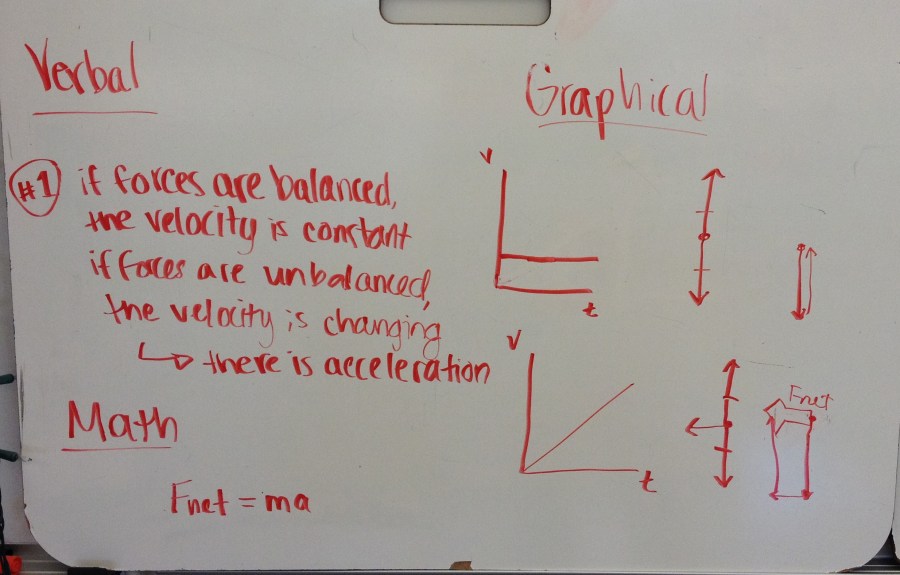 Verbal
Graphical
#1 if forces are balanced,
the velocity is constant
if forces are unbalanced,
the velocity is changing
↳ there is acceleration
Math
Fnet = ma
v
t
v
t
Fnet